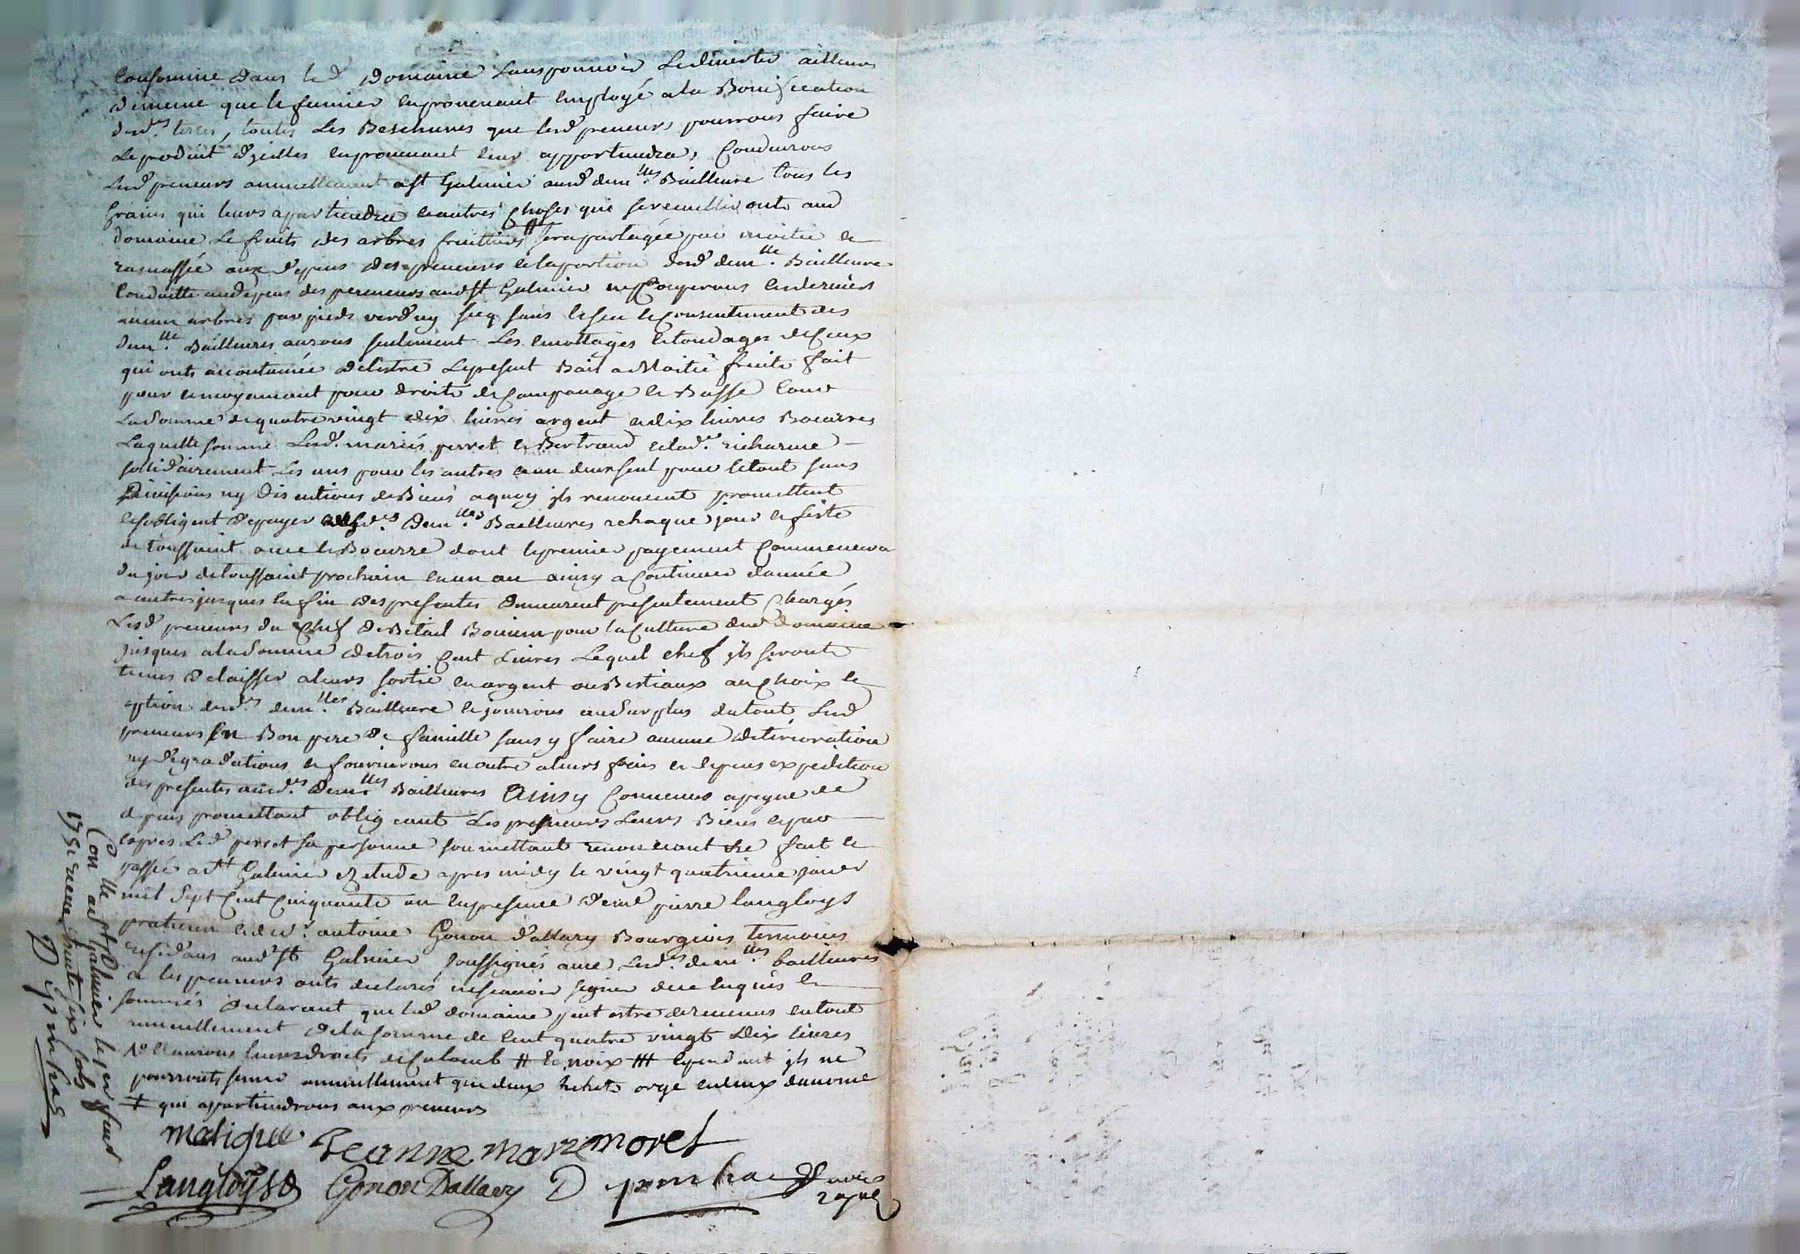 Consommé dans led domaine sans pouvoir le divertir ailleurs
demême que le fumier en provenant employé a la Bonification
desd.es terres, toutes Les Beschures que lesd preneurs pourrons faire
Le produit d'jcelles en provenant leur appartiendra, Conduirons
Lesd preneurs annuellement a St Galmier ausd dem.lles Bailleure tous les
Grains qui leurs apartiendra autres Choses qui se reculliront aud
domaine Le fruits des arbres fruittiers # sera partagée par moitié et
ramassée aux depens des preneurs et la portion desd dem.lle Bailleure
Conduitte aux depens des preneurs aud St Galmier ne Couperons
aucun arbres par pieds verd ny secq sans le consentement des
dem.lle Bailleures aurons seulement Les emottages et tondages de Ceux
qui onts accoutumée de l'estre Le present Bail a Moitié fruits fait
pour et moyennant pour droits de Companage et Basse Cour
La somme de quatre vingt dix livres argent et dix livres Beurre
Laquelle somme Lesd. mariés perret et Bertrand et lad.e richarme
sollidairement Les uns pour les autres un deux seul pour le tout sans
Divisions ny discutions de Biens a quoy jls renoncent promettent
et s'obligent de payer ausd.es Dem.lles Bailleures a chaque jour et feste
de toussaint avec le Beurre dont le premier payement Commencera
du jour de toussaint prochain en un an ainsy a Continuer d'année
a autres jusques la fin des presentes demeurent presentement Chargés
Lesd preneurs du Chef de Bétail Bovin pour la Culture dud domaine
jusques a la somme de trois Cent Livres Lequel chef jls seront
tenus de laisser a leurs sortie en argent ou Bestiaux au Choix et
option desd.es dem.lles Bailleure et jouirons au surplus du tout Lesd
preneurs En Bon pere de famille sans y faire aucune déterioration
ny dégradations et fournirons en outre a leurs frais et depens expedition
des presentes ausd.es Dem.lles Bailleures Ainsy Convenus a peyne de
depens promettant obligeant Les preneurs Leurs Biens et par
Exprès Led perret sa personne soumettant renonceant &e fait et
passé a St Galmier Etude apres midy le vingt quatrieme
mil Sept Cent Cinquante un en presence de pierre langloys
praticien et de s.r antoine Gonon d'allary Bourgeois temoins
residans aud St Galmier soussignés avec Lesd.es dem.lles bailleures
et les preneurs onts declarés ne scavoir signer de ce enquis et
sommés Declarant que led domaine peut estre de revenus en tout
annuellement de la somme de Cent quatre vingt Dix livres
# et noix ### cependant jls ne
pourronts semer annuellement que deux bichets orge
# qui appartiendrons aux preneurs
matigue Jeanne Marie morel
Langloys Gonon Dallary D
Con.lle a St Galmier le
1751 receu